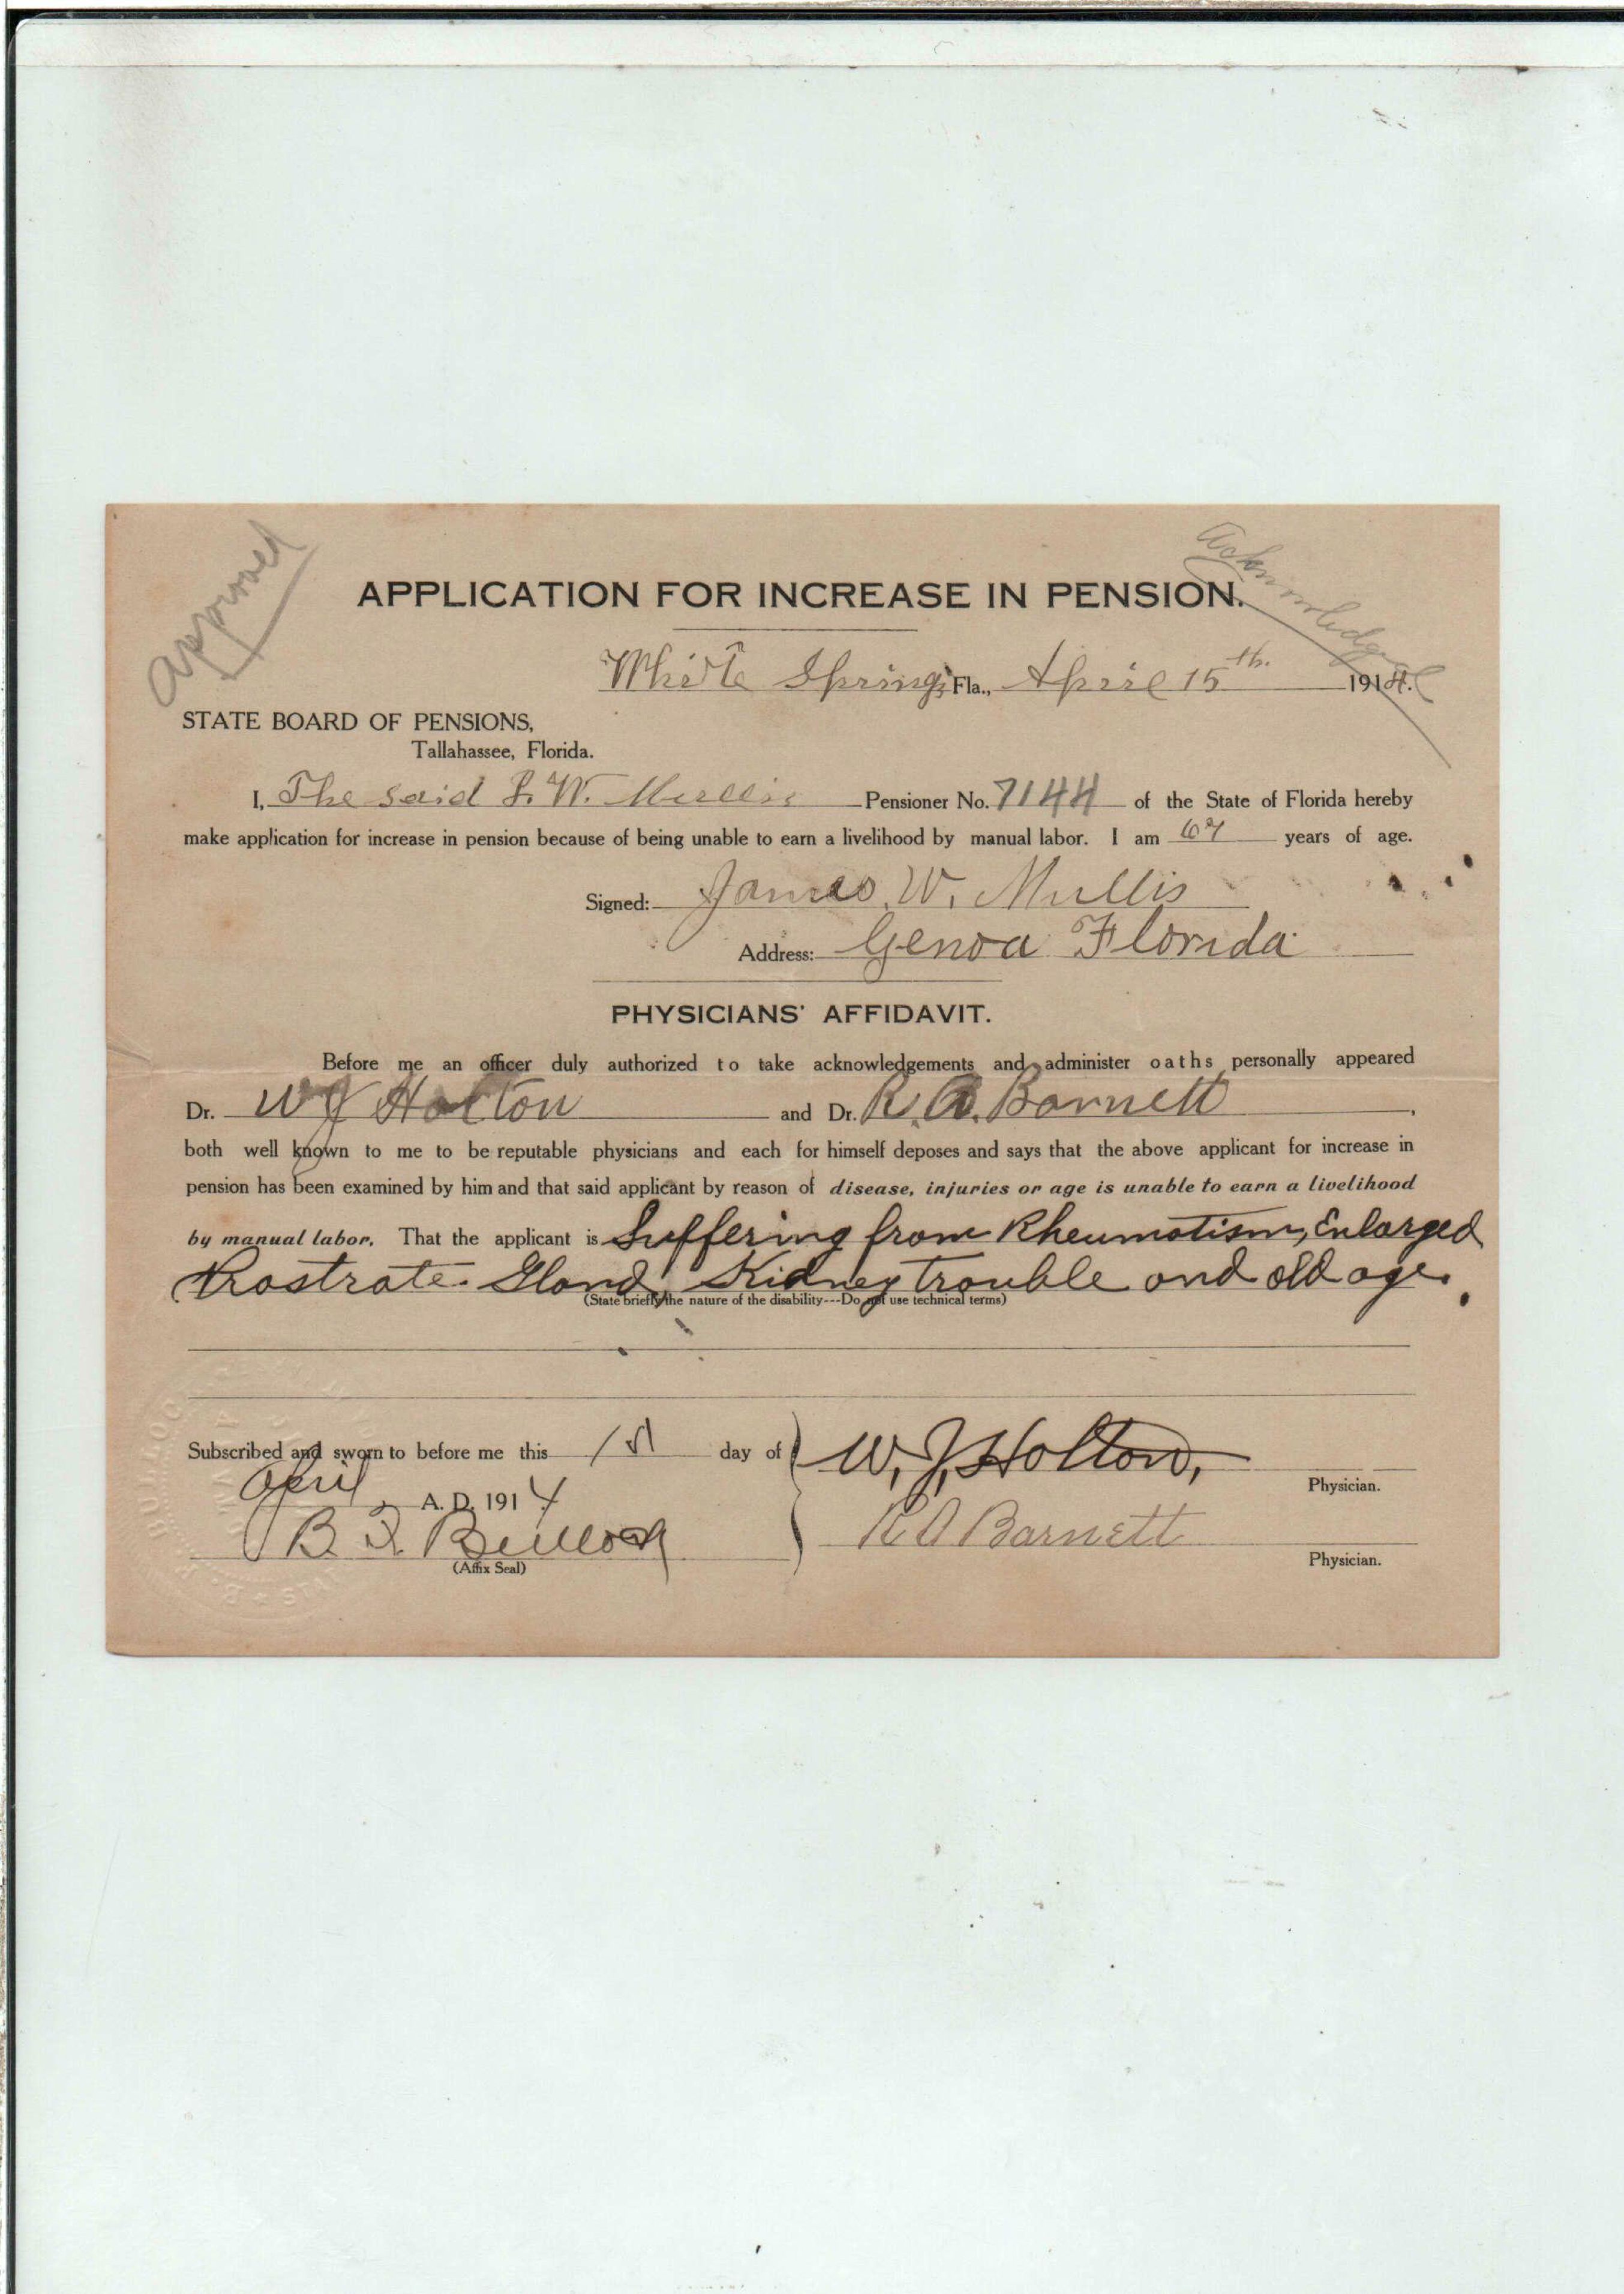 approved
Acknowledged
APPLICATION FOR INCREASE IN PENSION.
White Springs, Fla., April 15th. 1914.
STATE BOARD OF PENSIONS,
Tallahassee, Florida.
I, The said J. W. Mullis Pensioner No. 7144 of the State of Florida hereby
make application for increase in pension because of being unable to earn a livelihood by manual labor. I am 67 years of age.
Signed: James W. Mullis
Address: Genoa Florida
PHYSICIANS' AFFIDAVIT.
Before me an officer duly authorized to take acknowledgements and administer oaths personally appeared
Dr. W J Holton and Dr. R. A. Barnett,
both well known to me to be reputable physicians and each for himself deposes and says that the above applicant for increase in
pension has been examined by him and that said applicant by reason of disease, injuries or age is unable to earn a livelihood
by manual labor. That the applicant is Suffering from Rheumatism, Enlarged
Prostrate Gland, Kidney trouble and old age.
(State briefly the nature of the disability---Do not use technical terms)
Subscribed and sworn to before me this 15 day of W. J. Holton,
Physician.
April A. D. 1914
B. F. Bullock R A Barnett
(Affix Seal) Physician.